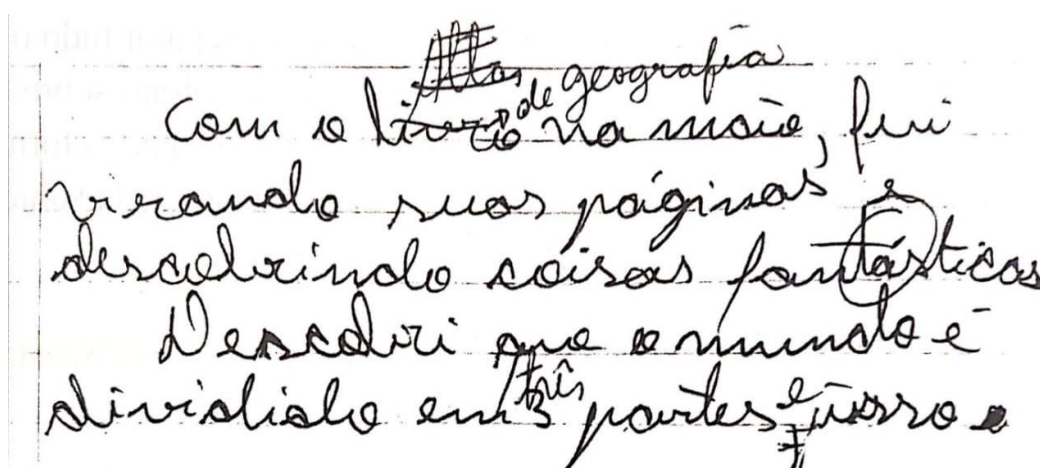 Atlas de geografia
Com o livro na mão, fui
virando suas páginas, e
descobrindo coisas fantásticas
Descobri que o mundo é
dividido em 3 três partes e isso